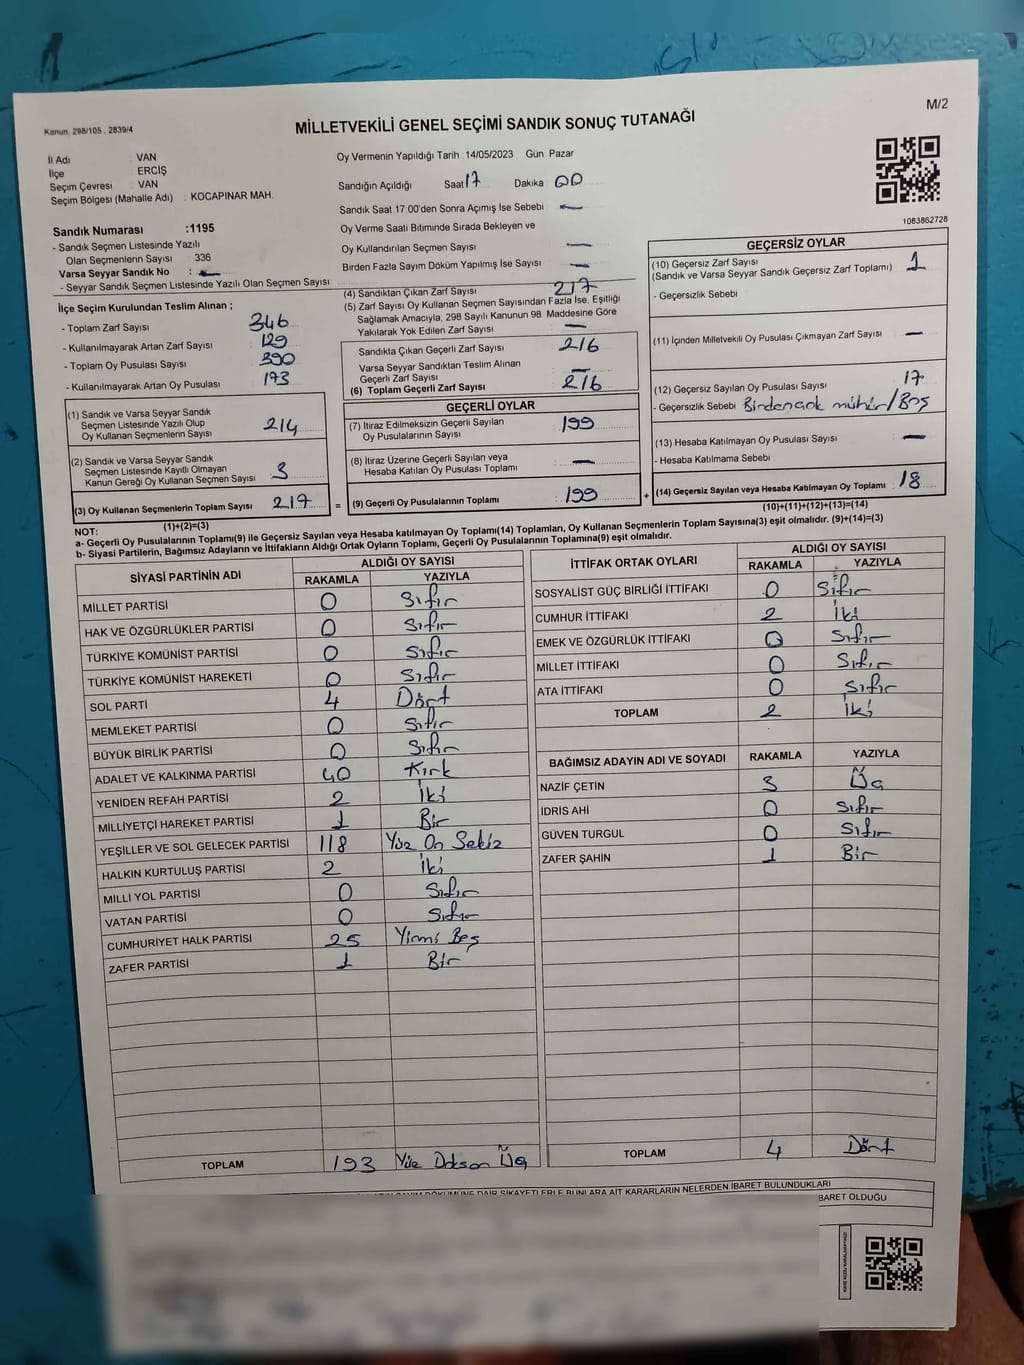 M/2
Kanun, 298/105 , 2839/4
MİLLETVEKİLİ GENEL SEÇİMİ SANDIK SONUÇ TUTANAĞI
İl Adı VAN
İlçe : ERCİŞ
Seçim Çevresi : VAN
Seçim Bölgesi (Mahalle Adı) : KOCAPINAR MAH.
Sandık Numarası :1195
- Sandık Seçmen Listesinde Yazılı
Olan Seçmenlerin Sayısı 336
Varsa Seyyar Sandık No : —
- Seyyar Sandık Seçmen Listesinde Yazılı Olan Seçmen Sayısı
İlçe Seçim Kurulundan Teslim Alınan ;
- Toplam Zarf Sayısı 346
- Kullanılmayarak Artan Zarf Sayısı 129
- Toplam Oy Pusulası Sayısı 390
- Kullanılmayarak Artan Oy Pusulası 173
(1) Sandık ve Varsa Seyyar Sandık
Seçmen Listesinde Yazılı Olup
Oy Kullanan Seçmenlerin Sayısı 214
(2) Sandık ve Varsa Seyyar Sandık
Seçmen Listesinde Kayıtlı Olmayan
Kanun Gereği Oy Kullanan Seçmen Sayısı 3
(3) Oy Kullanan Seçmenlerin Toplam Sayısı 217
(1)+(2)=(3)
Oy Vermenin Yapıldığı Tarih 14/05/2023 Gün Pazar
Sandığın Açıldığı Saat 17 Dakika 00
Sandık Saat 17:00'den Sonra Açımış İse Sebebi —
Oy Verme Saati Bitiminde Sırada Bekleyen ve
Oy Kullandırılan Seçmen Sayısı —
Birden Fazla Sayım Döküm Yapılmış İse Sayısı —
(4) Sandıktan Çıkan Zarf Sayısı 217
(5) Zarf Sayısı Oy Kullanan Seçmen Sayısından Fazla İse, Eşitliği
Sağlamak Amacıyla, 298 Sayılı Kanunun 98 Maddesine Göre
Yakılarak Yok Edilen Zarf Sayısı —
Sandıkta Çıkan Geçerli Zarf Sayısı 216
Varsa Seyyar Sandıktan Teslim Alınan
Geçerli Zarf Sayısı —
(6) Toplam Geçerli Zarf Sayısı 216
GEÇERLİ OYLAR
(7) İtiraz Edilmeksizin Geçerli Sayılan
Oy Pusulalarının Sayısı : 199
(8) İtiraz Üzerine Geçerli Sayılan veya
Hesaba Katılan Oy Pusulası Toplamı : —
= (9) Geçerli Oy Pusulalarının Toplamı : 199 +
1083862728
GEÇERSİZ OYLAR
(10) Geçersiz Zarf Sayısı 1
(Sandık ve Varsa Seyyar Sandık Geçersiz Zarf Toplamı)
- Geçersizlik Sebebi
(11) İçinden Milletvekili Oy Pusulası Çıkmayan Zarf Sayısı —
(12) Geçersiz Sayılan Oy Pusulası Sayısı 17
- Geçersizlik Sebebi Birdençok mühür/Boş
(13) Hesaba Katılmayan Oy Pusulası Sayısı —
- Hesaba Katılmama Sebebi
(14) Geçersiz Sayılan veya Hesaba Katılmayan Oy Toplamı 18
(10)+(11)+(12)+(13)=(14)
NOT:
a- Geçerli Oy Pusulalarının Toplamı(9) ile Geçersiz Sayılan veya Hesaba katılmayan Oy Toplamı(14) Toplamları, Oy Kullanan Seçmenlerin Toplam Sayısına(3) eşit olmalıdır. (9)+(14)=(3)
b- Siyasi Partilerin, Bağımsız Adayların ve İttifakların Aldığı Ortak Oyların Toplamı, Geçerli Oy Pusulalarının Toplamına(9) eşit olmalıdır.
SİYASİ PARTİNİN ADI ALDIĞI OY SAYISI
RAKAMLA YAZIYLA
MİLLET PARTİSİ 0 Sıfır
HAK VE ÖZGÜRLÜKLER PARTİSİ 0 Sıfır
TÜRKİYE KOMÜNİST PARTİSİ 0 Sıfır
TÜRKİYE KOMÜNİST HAREKETİ 0 Sıfır
SOL PARTİ 4 Dört
MEMLEKET PARTİSİ 0 Sıfır
BÜYÜK BİRLİK PARTİSİ 0 Sıfır
ADALET VE KALKINMA PARTİSİ 40 Kırk
YENİDEN REFAH PARTİSİ 2 İki
MİLLİYETÇİ HAREKET PARTİSİ 1 Bir
YEŞİLLER VE SOL GELECEK PARTİSİ 118 Yüz On Sekiz
HALKIN KURTULUŞ PARTİSİ 2 İki
MİLLİ YOL PARTİSİ 0 Sıfır
VATAN PARTİSİ 0 Sıfır
CUMHURİYET HALK PARTİSİ 25 Yirmi Beş
ZAFER PARTİSİ 1 Bir
TOPLAM 193 Yüz Doksan Üç
İTTİFAK ORTAK OYLARI ALDIĞI OY SAYISI
RAKAMLA YAZIYLA
SOSYALİST GÜÇ BİRLİĞİ İTTİFAKI 0 Sıfır
CUMHUR İTTİFAKI 2 İki
EMEK VE ÖZGÜRLÜK İTTİFAKI 0 Sıfır
MİLLET İTTİFAKI 0 Sıfır
ATA İTTİFAKI 0 Sıfır
TOPLAM 2 İki
BAĞIMSIZ ADAYIN ADI VE SOYADI RAKAMLA YAZIYLA
NAZİF ÇETİN 3 Üç
İDRİS AHİ 0 Sıfır
GÜVEN TURGUL 0 Sıfır
ZAFER ŞAHİN 1 Bir
TOPLAM 4 Dört
SAYIM DÖKÜMÜNE DAİR ŞİKAYETLERLE BUNLARA AİT KARARLARIN NELERDEN İBARET BULUNDUKLARI
BARET OLDUĞU